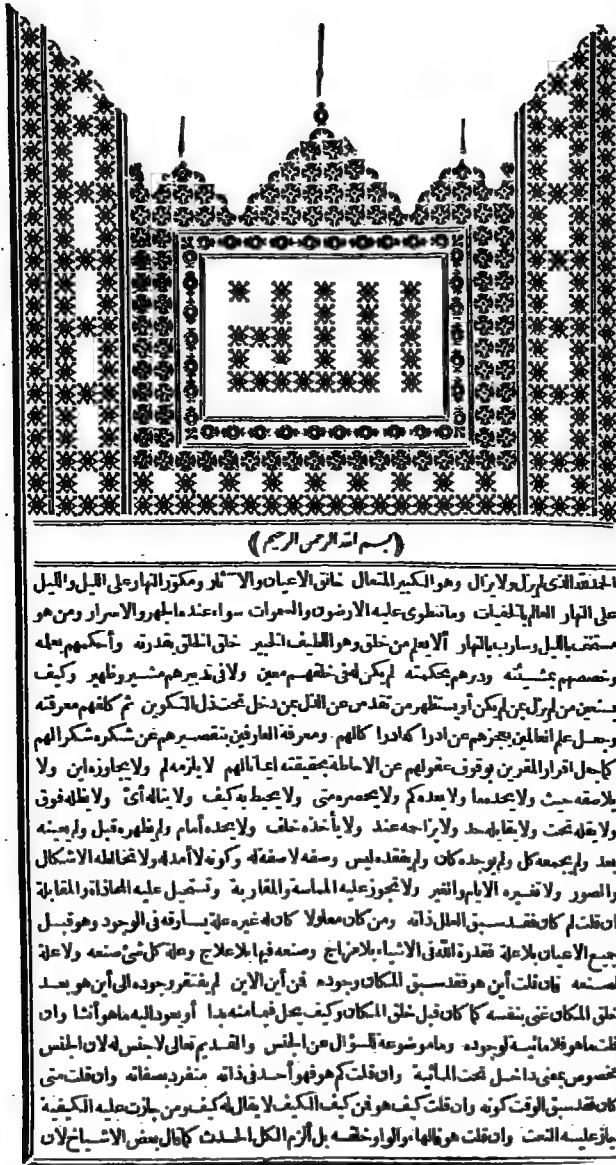 الله
(بسم الله الرحمن الرحيم)
الحمد لله الذي لم يزل ولا يزال وهو الكبير المتعال خالق الاعيان والآثار ومكور النهار على الليل والليل
على النهار العالم بالخفيات وما تنطوي عليه الارضون والسموات سواء عنده الجهر والاسرار ومن هو
مستخف بالليل وسارب بالنهار ألا يعلم من خلق وهو اللطيف الخبير خلق الخلق بقدرته وأحكمهم بعلمه
وخصصهم بمشيئته ودبرهم بحكمته لم يكن له في خلقهم معين ولا في تدبيرهم مشير وظهير وكيف
يستعين من لم يزل بمن لم يكن أو يستظهر من تقدس عن الذل بمن دخل تحت ذل التكوين ثم كلفهم معرفته
وجعل علم العالمين بعجزهم عن ادراكه ادراكا لهم ومعرفة العارفين بتقصيرهم عن شكره شكرا لهم
كما جعل اقرار المقرين بوقوف عقولهم عن الاحاطة بحقيقته ايمانا لهم لا يلزمه لم ولا يجاوزه اين ولا
يلاصقه حيث ولا يحده ما ولا يعده كم ولا يحصره متى ولا يحيط به كيف ولا يناله أي ولا يظله فوق
ولا يقله تحت ولا يقابله حد ولا يزاحمه عند ولا يأخذه خلف ولا يحده أمام ولم يظهره قبل ولم يفنه
بعد ولم يجمعه كل ولم يوجده كان ولم يفقده ليس وصفه لا صفة له وكونه لا أمد له ولا تخالطه الاشكال
والصور ولا تغيره الايام والغير ولا تجوز عليه المماسة والمقاربة وتستحيل عليه المحاذاة والمقابلة
ان قلت لم كان فقد سبق العلل ذاته ومن كان معلولا كان له غيره علة يساوقه في الوجود وهو قبل
جميع الاعيان بلا علة فقدرة الله في الاشياء بلا مزاج وصنعه فيها بلا علاج وعلة كل شئ صنعه ولا علة
لصنعه فان قلت أين هو فقد سبق المكان وجوده فمن أين الاين لم يفتقر وجوده الى أين هو بعد
خلق المكان غني بنفسه كما كان قبل خلق المكان وكيف يحل فيما منه بدا أو يعود اليه ما هو أنشا وان
قلت ما هو فلا مائية لوجوده وما موضوعة للسؤال عن الجنس والقديم تعالى لا جنس له لان الجنس
مخصوص بمعنى داخل تحت المائية وان قلت كم هو فهو أحد في ذاته منفرد بصفاته وان قلت متى
كان فقد سبق الوقت كونه وان قلت كيف هو فمن كيف الكيف لا يقال له كيف ومن جازت عليه الكيفية
جاز عليه التغير وان قلت هو فالهاء والواو خلقه بل ألزم الكل الحدث كما قال بعض الاشياخ لان